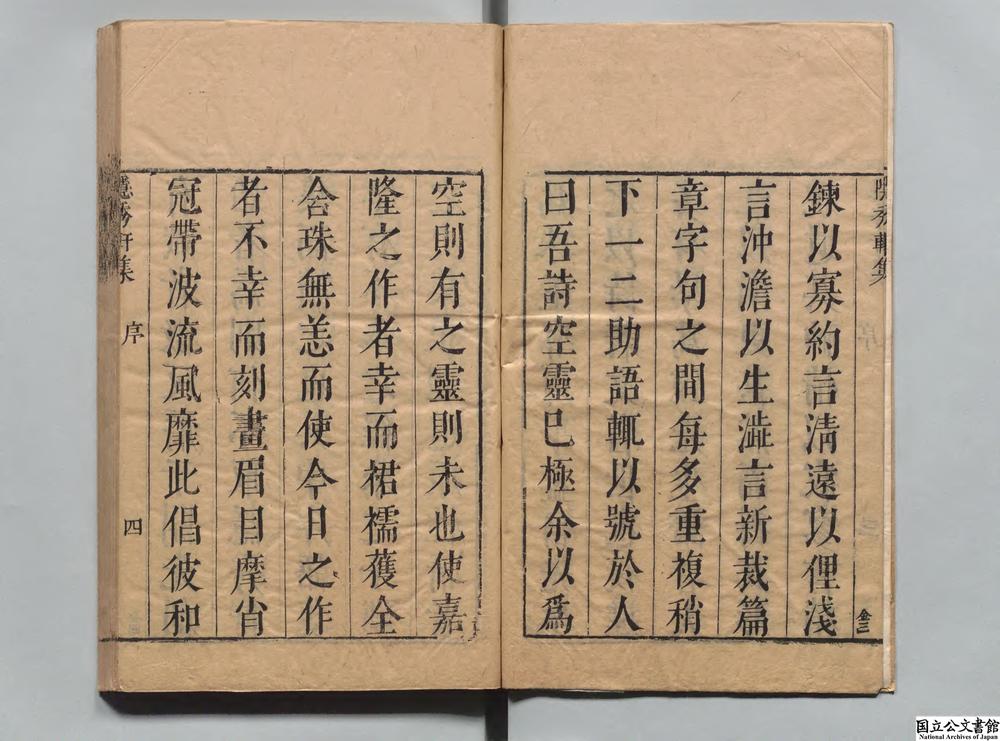 鍊以寡約言清遠以俚淺
言沖澹以生澁言新裁篇
章字句之間每多重複稍
下一二助語輒以號於人
曰吾詩空靈已極余以爲
空則有之靈則未也使嘉
隆之作者幸而裙襦獲全
含珠無恙而使今日之作
者不幸而刻畫眉目摩肖
冠帶波流風靡此倡彼和
隱秀軒集
序
四
国立公文書館
National Archives of Japan